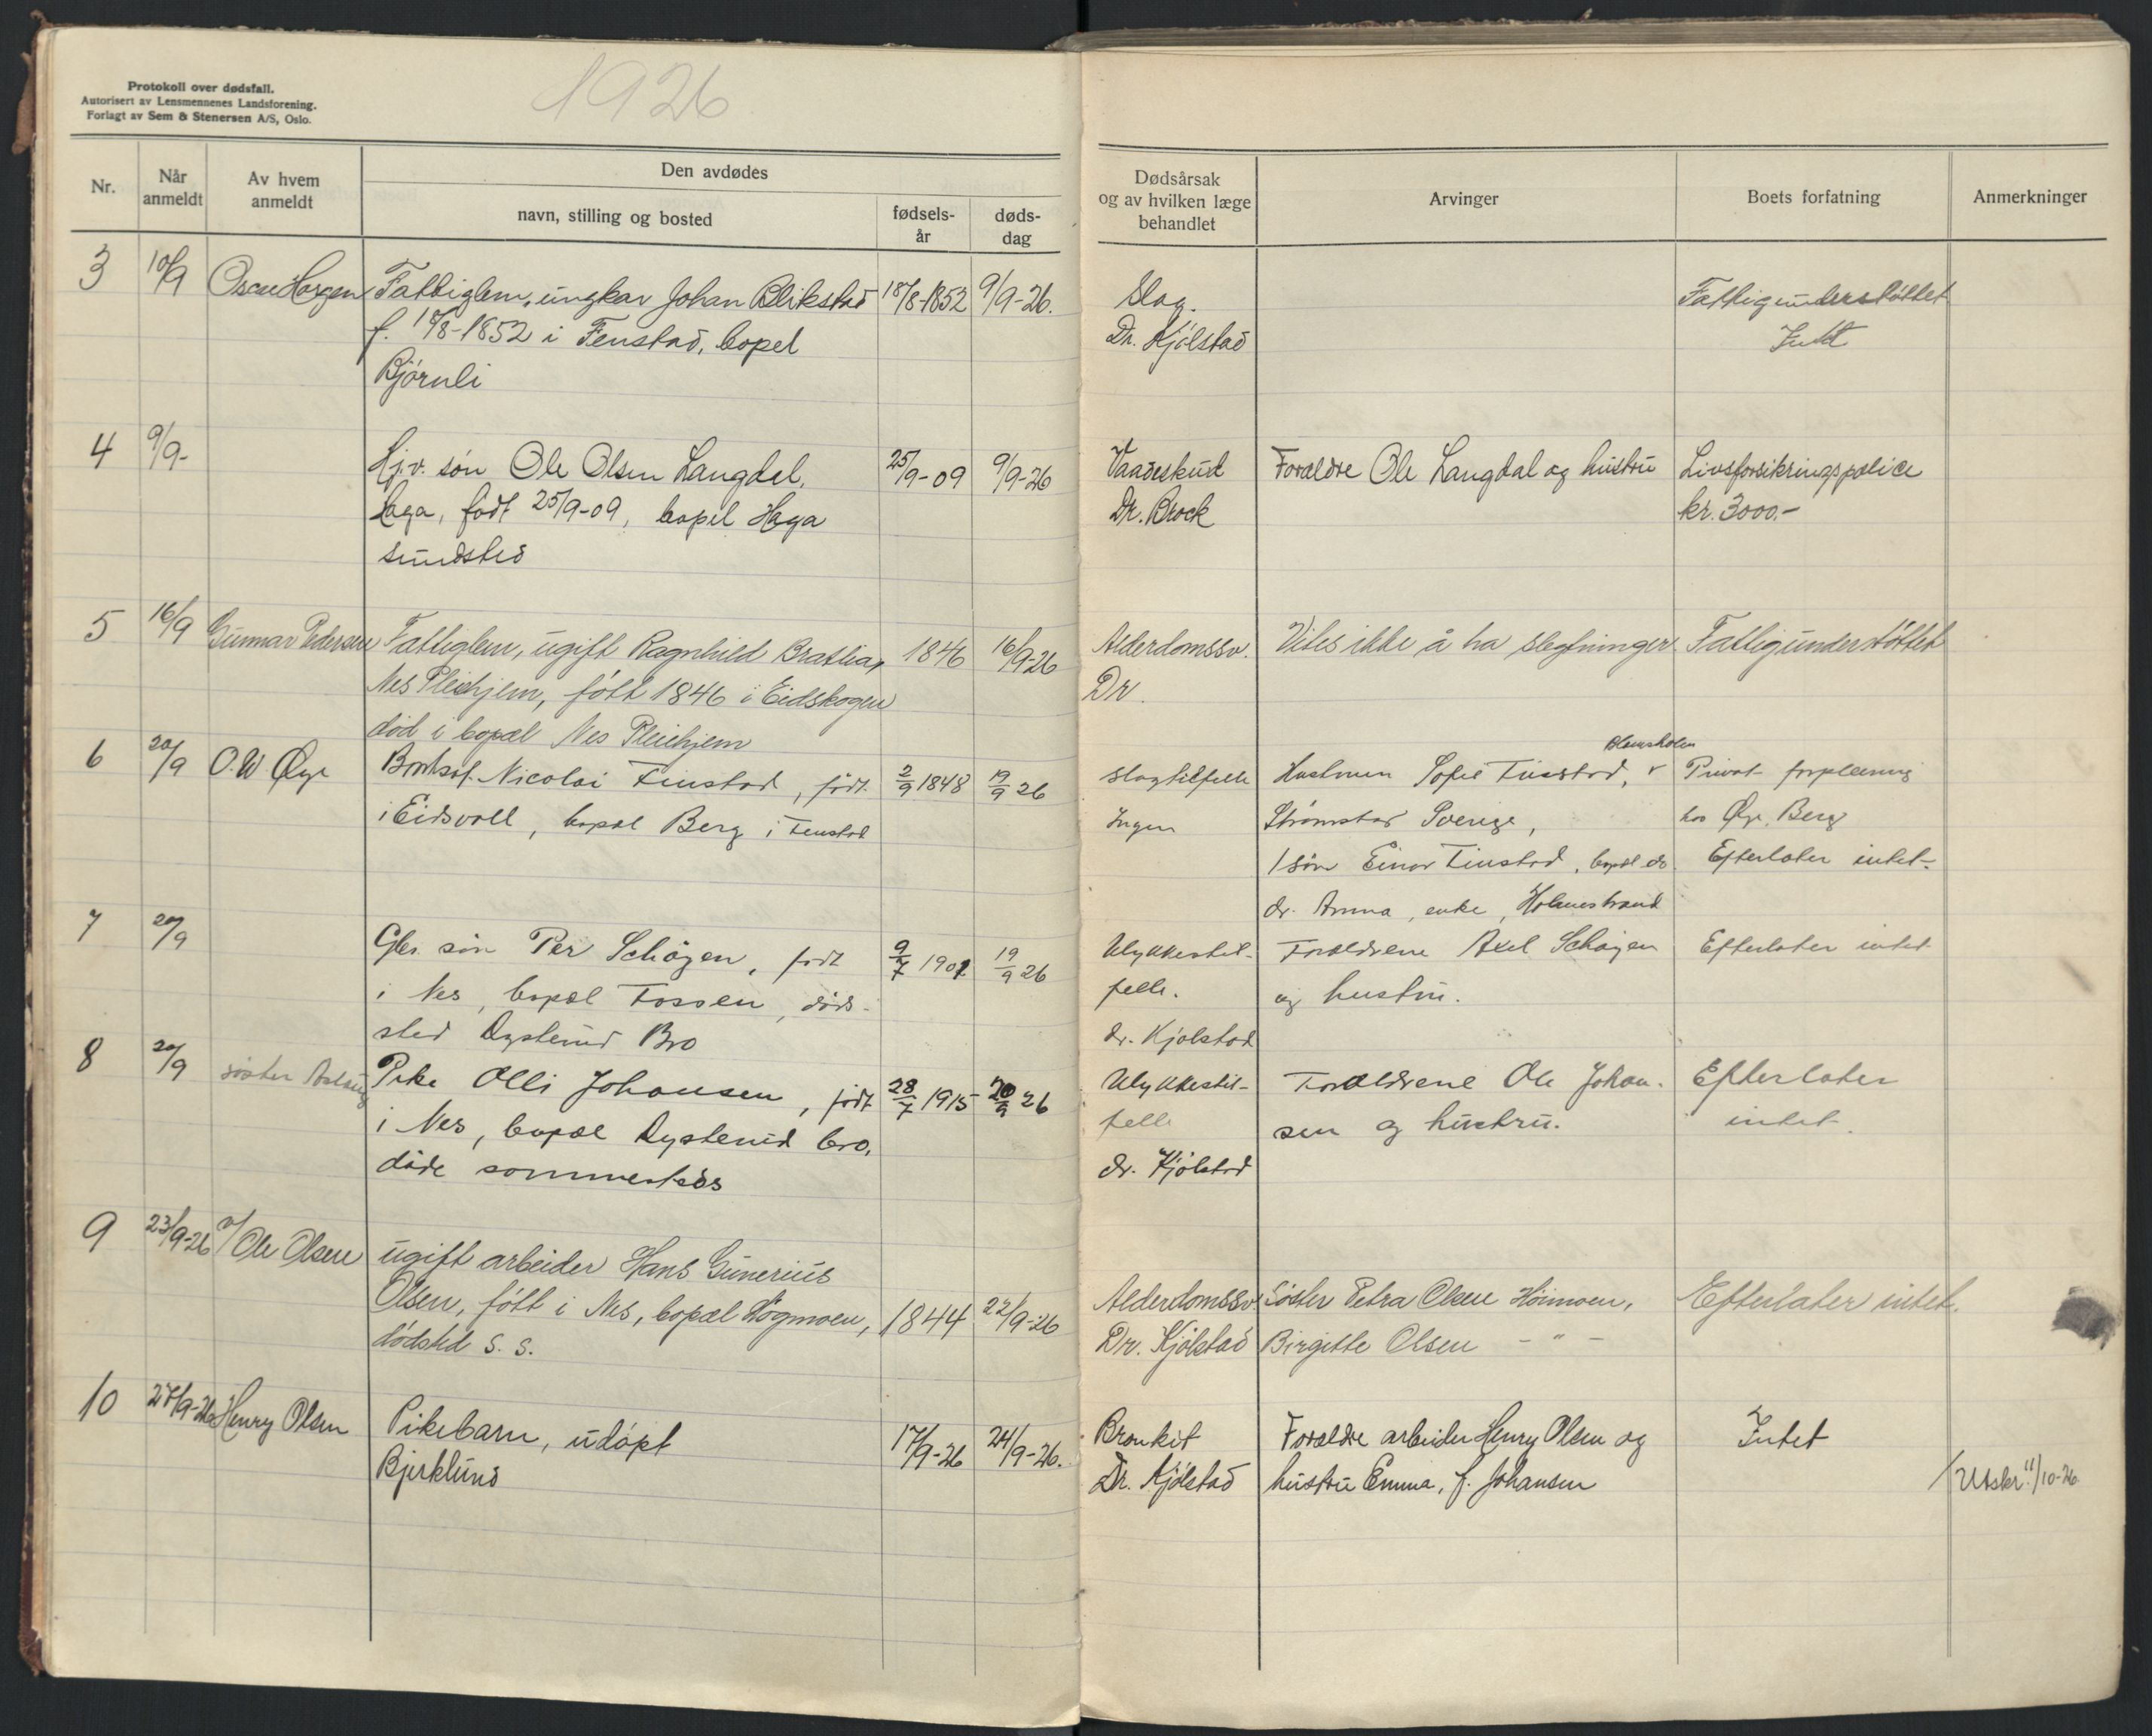 Protokoll over dødsfall.
Autorisert av Lensmennenes Landsforening.
Forlagt av Sem & Stenersen A/S, Oslo.
1926
Nr.
Når anmeldt
Av hvem anmeldt
Den avdødes
navn, stilling og bosted
fødsels-år
døds-dag
Dødsårsak og av hvilken læge behandlet
Arvinger
Boets forfatning
Anmerkninger
3 10/9 Oscar Horgen Fattiglem, ungkar Johan Blikstad 18/8-1852 9/9-26. Slag. Fattigunderstøttet
f. 18/8-1852 i Fenstad, bopel Dr. Kjölstad Intet
Björnli
4 9/9- Gj.v. søn Ole Olsen Langdal, 25/9-09 9/9-26 Vaadeskud Foreldre Ole Langdal og hustru Livsforsikringspolice
Haga, født 25/9-09, bopel Haga Dr. Brock kr. 3000.-
sundsted
5 16/9 Gunnar Pedersen Fattiglem, ugift Ragnhild Bratlia, 1846 16/9-26 Alderdomssv. Vites ikke å ha slegtninger. Fattigunderstöttet
Nes Pleiehjem, fött 1846 i Eidskogen Dr.
död i bopæl Nes Pleiehjem
6 20/9 O.W Øye Nicolai Finstad, født 2/9 1848 19/9 26 slagtilfelle Hustruen Sofie Finstad, Privat forpleining
i Eidsvoll, bopæl Berg i Fenstad Ingen Strømstad Sverige, hos Øye, Berg
1 søn Einar Finstad, bopæl do Efterlater intet-
dr. Anna, enke, Holmestrand
7 20/9 Gbr. søn Per Schøyen, født 9/7 1901 19/9 26 Ulykkestil- Foreldrene Axel Schøyen Efterlater intet
i Nes, bopæl Fossen, døds- felle. og hustru.
sted Dysterud Bro dr. Kjølstad
8 20/9 søster Aslaug Pike Olli Johansen, født 28/7 1915 20/9 26 Ulykkestil- Foreldrene Ole Johan- Efterlater
i Nes, bopæl Dysterud bro, felle sen og hustru. intet.
døde sommesteds dr. Kjølstad
9 23/9-26 v/ Ole Olsen ugift arbeider Hans Gunerius
Olsen, fött i Nes, bopæl Högmoen, 1844 22/9-26 Alderdomssv. Søster Petra Olsen Höimoen, Efterlater intet.
dödsted s. s. Dr. Kjölstad Birgitte Olsen - " -
10 27/9-26 Henry Olsen Pikebarn, udöpt 17/9-26 24/9-26. Bronkit Foreldre arbeider Henry Olsen og Intet
Bjerklund Dr. Kjölstad hustru Emma, f. Johansen Utskr. 11/10-26